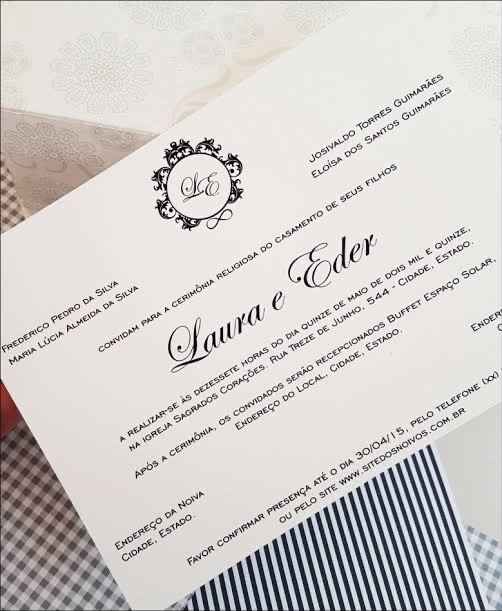 LE
Frederico Pedro da Silva
Maria Lúcia Almeida da Silva
Josivaldo Torres Guimarães
Eloísa dos Santos Guimarães
convidam para a cerimônia religiosa do casamento de seus filhos
Laura e Eder
a realizar-se às dezessete horas do dia quinze de maio de dois mil e quinze,
na igreja Sagrados Corações. Rua Treze de Junho, 544 - Cidade, Estado.
Após a cerimônia, os convidados serão recepcionados Buffet Espaço Solar,
Endereço do Local. Cidade, Estado.
Endereço da Noiva
Cidade, Estado.
Endereço
Favor confirmar presença até o dia 30/04/15, pelo telefone (xx)
ou pelo site www.sitedosnoivos.com.br